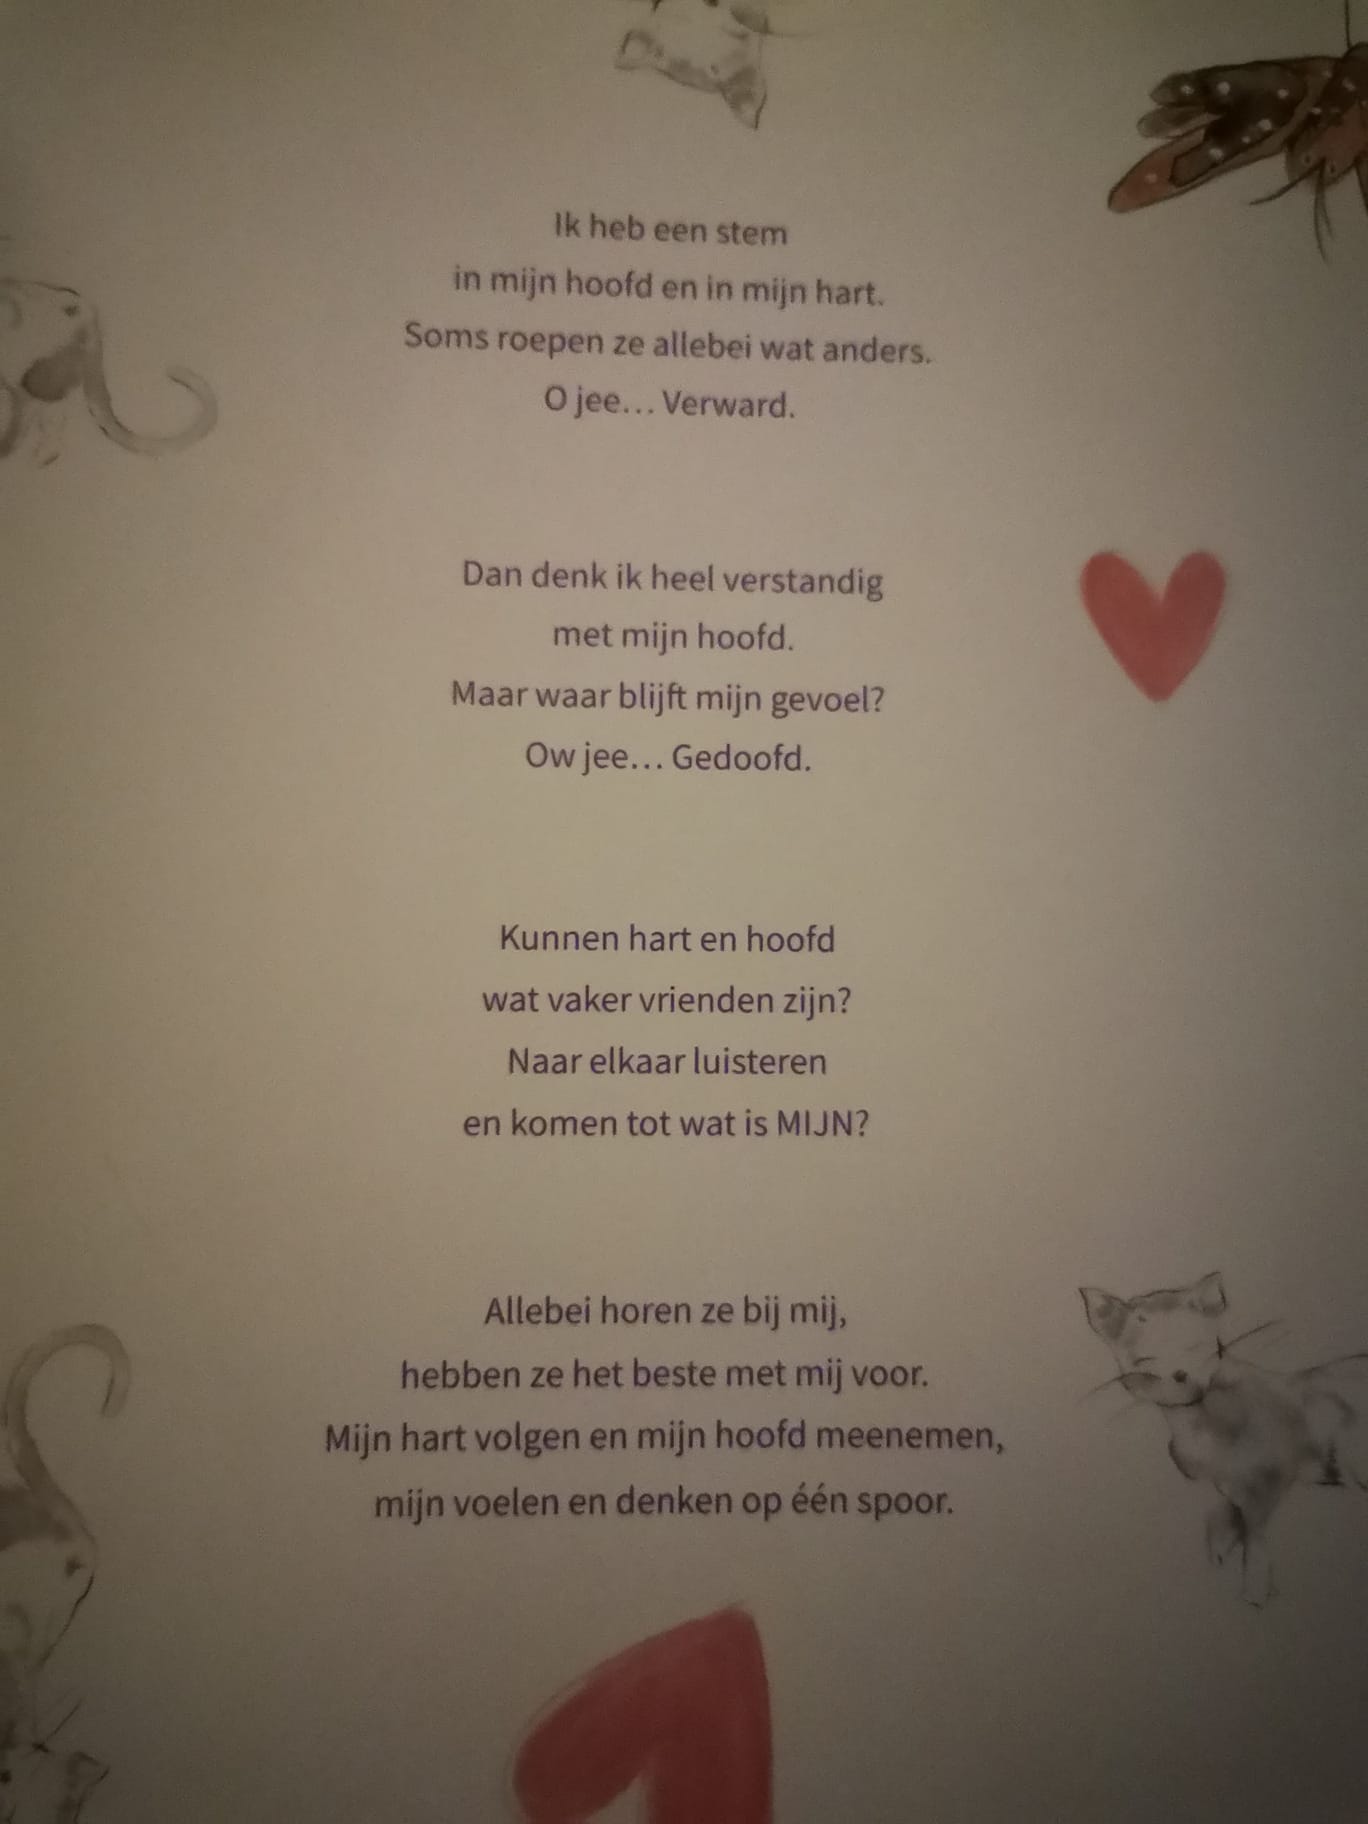 Ik heb een stem
in mijn hoofd en in mijn hart.
Soms roepen ze allebei wat anders.
O jee... Verward.
Dan denk ik heel verstandig
met mijn hoofd.
Maar waar blijft mijn gevoel?
Ow jee... Gedoofd.
Kunnen hart en hoofd
wat vaker vrienden zijn?
Naar elkaar luisteren
en komen tot wat is MIJN?
Allebei horen ze bij mij,
hebben ze het beste met mij voor.
Mijn hart volgen en mijn hoofd meenemen,
mijn voelen en denken op één spoor.